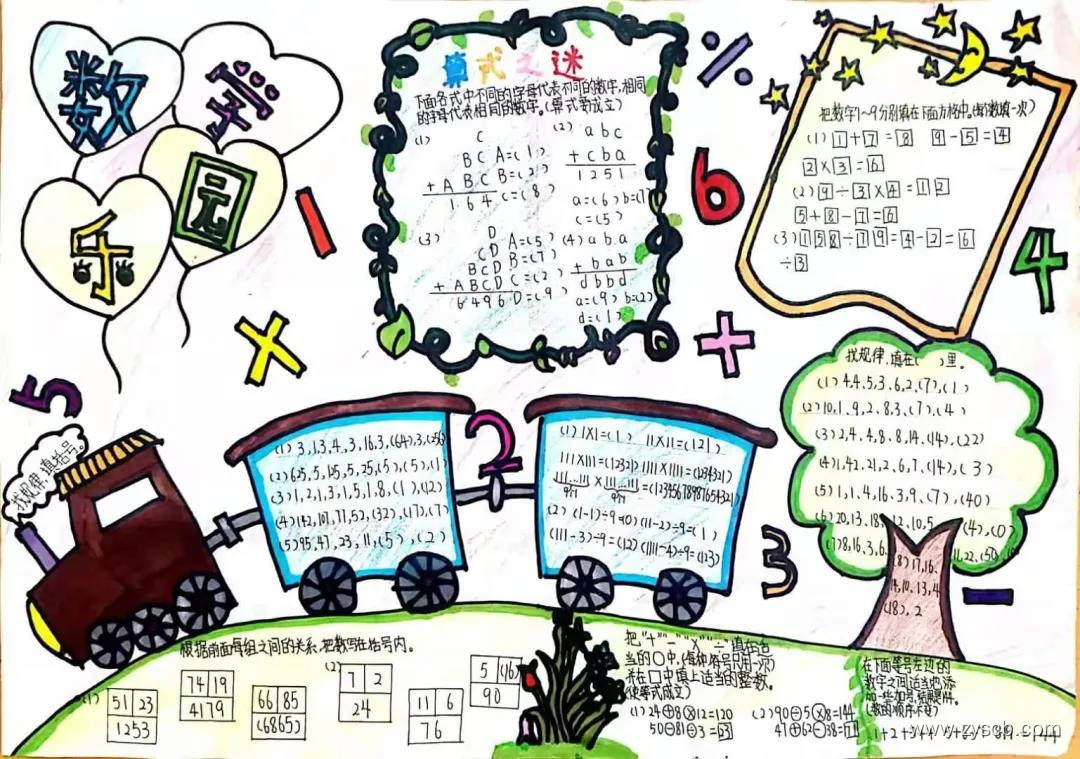 数
学
乐
园
算式之迷
下面各式中不同的字母代表不同的数字,相同
的字母代表相同的数字。(算式要成立)
(1) C
B C A=(1)
+ A B C B=(2)
1 6 4 C=(8)
(2) a b c
+ c b a
1 2 5 1
a=(6) b=(7)
c=(5)
(3) D
CD A=(5)
BCD B=(7)
+ ABCD C=(2)
6 4 9 6 D=(9)
(4) a b a
+ b a b
d b b d
a=(9) b=(2)
d=(1)
把数字1~9分别填在下面方格中。(每个数填一次)
(1) 1+7=8 9-5=4
2×3=6
(2) 9÷3×4=12
5+8-7=6
(3) 158÷79=4-2=6
÷3
%
1
6
4
×
+
5
2
3
-
找规律,填括号。
(1) 3,13,4,3,16,3,(64),3,(256)
(2) 625,5,125,5,25,(5),(5),(1)
(3) 1,2,1,3,1,5,1,8,(1),(12)
(4) 142,107,77,52,(32),(17),(7)
(5) 95,47,23,11,(5),(2)
(1) 1×1=(1) 11×11=(121)
111×111=(12321) 1111×1111=(1234321)
111…111×111…111=(12345678987654321)
9个1 9个1
(2) (1-1)÷9=(0) (11-2)÷9=(1)
(111-3)÷9=(12) (1111-4)÷9=(123)
找规律,填在( )里。
(1) 4,4,5,3,6,2,(7),(1)
(2) 10,1,9,2,8,3,(7),(4)
(3) 2,4,4,8,8,14,(14),(22)
(4) 1,42,21,2,6,7,(14),(3)
(5) 1,1,4,16,3,9,(7),(40)
(6) 20,13,18,12,10,5 (4),(0)
(7) 8,16,3,6, 11,22,(50)
(8) 17,16,
14,10,13,4
(18),2
根据前面每组之间的关系,把数写在括号内。
(1) 51 23
1253
74 19
4179
66 85
(6865)
(2) 7 2
24
11 6
76
5 (16)
90
把"+""-""×""÷"填在适
当的○中,(每种符号只用一次)
并在□中填上适当的整数。
(使等式成立)
(1) 24+8×12=120
50-81÷3=23
(2) 90÷5×8=144
47+62-38=71
在下面等号左边的
数字之间适当地添
加一些加号,
(数的顺序不变)
www.zyscb.com